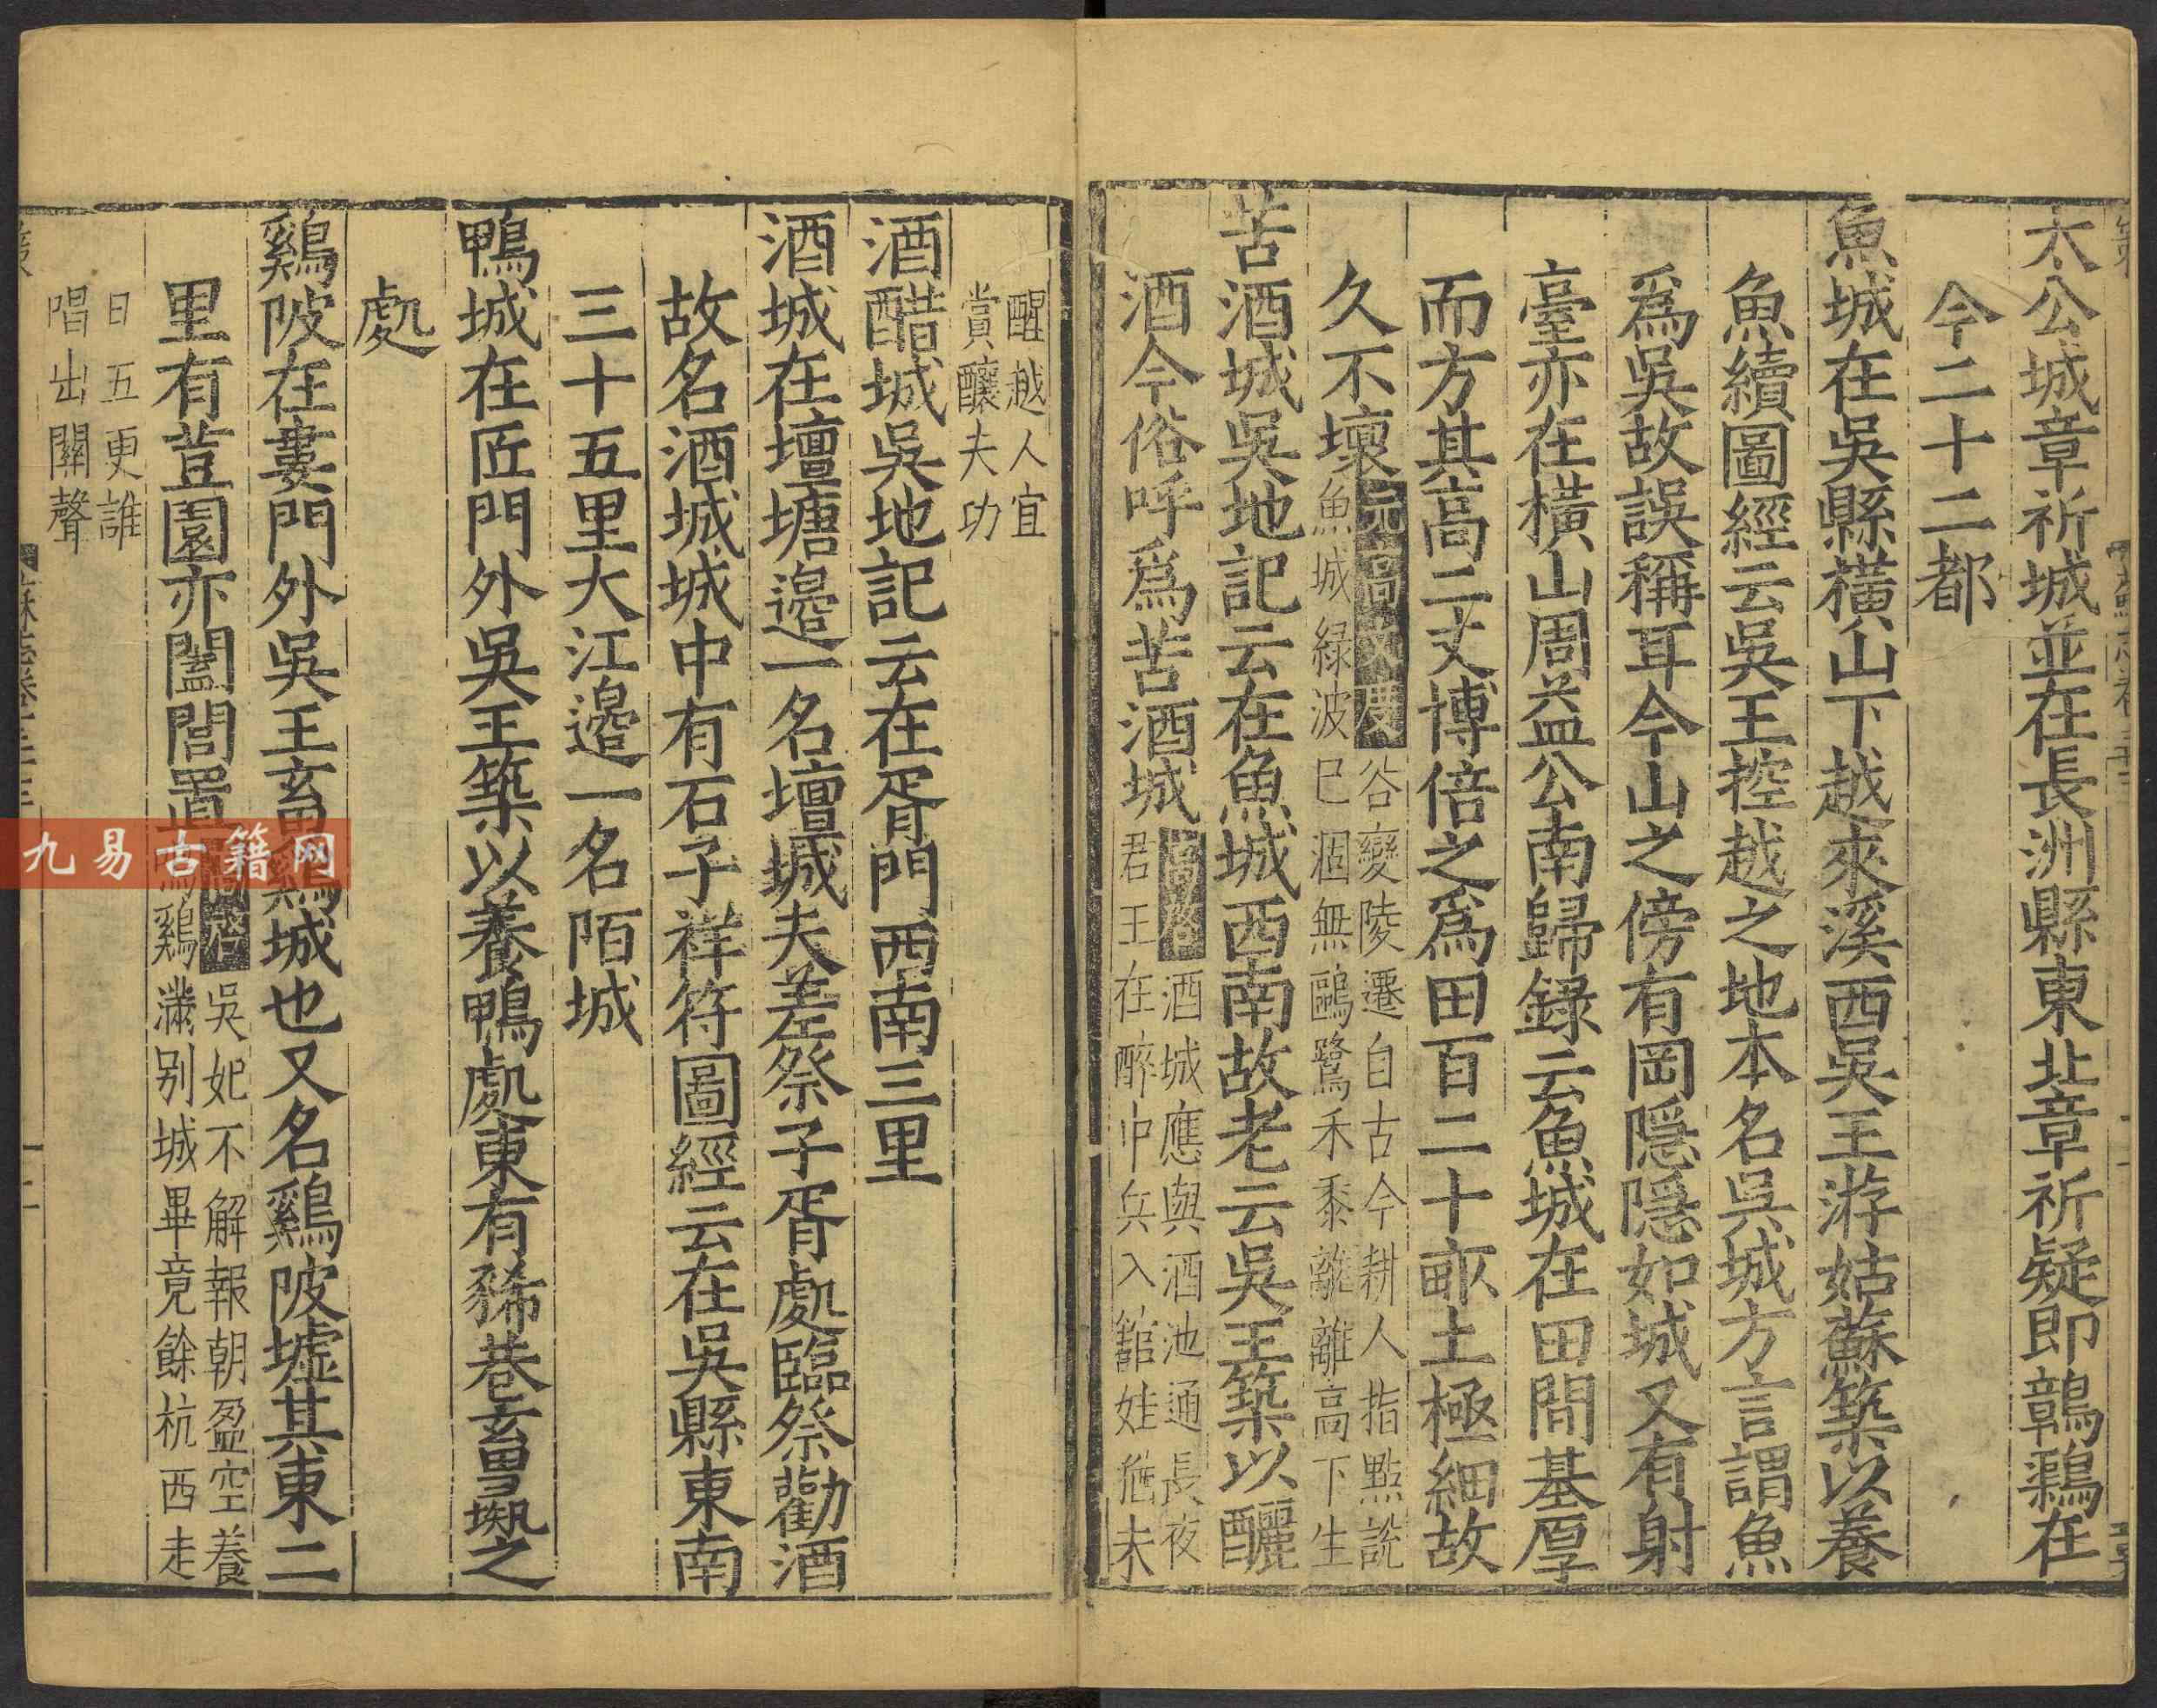 太公城章祈城並在長洲縣東北章祈疑即鷾鶏在
今二十二都
魚城在吳縣橫山下越來溪西吳王游姑蘇築以養
魚續圖經云吳王控越之地本名吳城方言謂魚
爲吳故誤稱耳今山之傍有岡隱隱如城又有射
臺亦在橫山周益公南歸錄云魚城在田間基厚
而方其高二丈博倍之爲田百二十畝土極細故
久不壞
元高文度谷變陵遷自古今耕人指點說
魚城綠波已涸無鷗鷺禾黍離離高下生
苦酒城吳地記云在魚城西南故老云吳王築以釃
酒今俗呼爲苦酒城
高啓酒城應與酒池通長夜
君王在醉中兵入館娃猶未
醒越人宜
賞釀夫功
酒醋城吳地記云在胥門西南三里
酒城在壇塘邊一名壇城夫差祭子胥處臨祭勸酒
故名酒城城中有石子祥符圖經云在吳縣東南
三十五里大江邊一名陌城
鴨城在匠門外吳王築以養鴨處東有豨巷畜彘之
處
鷄陂在婁門外吳王畜鷄城也又名鷄陂墟其東二
里有荳園亦闔閭置
高啓吳妃不解報朝盈空養
鳴鷄滿别城畢竟餘杭西走
日五更誰
唱出關聲
九易古籍网